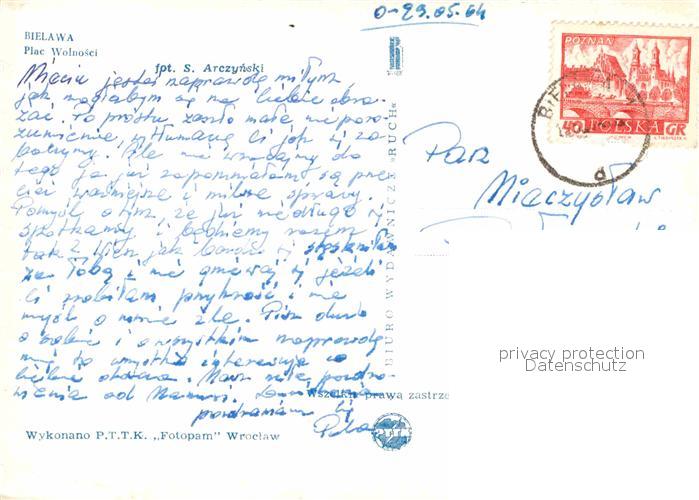 0-29.05.64
BIELAWA
Plac Wolności
fot. S. Arczyński
POZNAŃ
40 POLSKA GR
Miećiu jesteś naprawdę miłym
jak mogłabym się na Ciebie obra-
zać. Po prostu zaszło małe niepo-
rozumienie, wytłumaczę Ci jak się zo-
baczymy. Ale nie wracajmy do
tego ja już zapomniałam są prze-
cież ważniejsze i milsze sprawy.
Pomyśl o tym, że już niedługo się
spotkamy i będziemy razem
tak? Wiesz jak bardzo się stęskniłam
za Tobą i nie gniewaj się jeżeli
Ci zrobiłam przykrość i nie
myśl o mnie źle. Pisz dużo
o sobie i o wszystkim naprawdę
mnie to wszystko interesuje co
Ciebie otacza. Masz miłe pozdro-
wienia od Mamusi.
pozdrawiam Cię
Pan
Mieczysław
BIURO WYDAWNICZE „RUCH"
Wszelkie prawa zastrze
Wykonano P.T.T.K. „Fotopam" Wrocław
privacy protection
Datenschutz